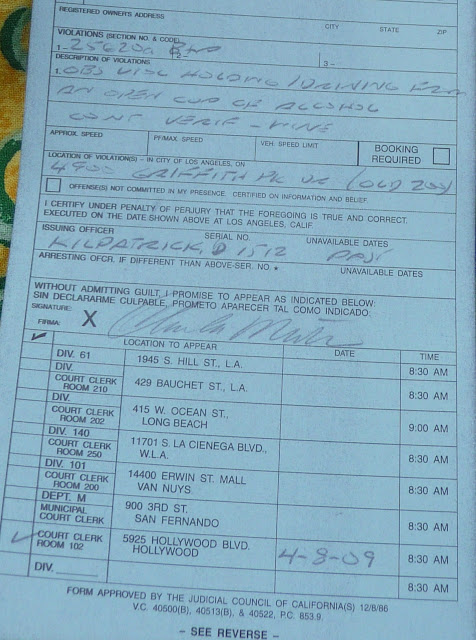 REGISTERED OWNER'S ADDRESS
CITY STATE ZIP
VIOLATIONS (SECTION NO. & CODE)
1-25620a B&P 2- 3-
DESCRIPTION OF VIOLATIONS
1. OBS VIOL HOLDING/DRINKING FROM
AN OPEN CUP OF ALCOHOL
CONT VERIF - WINE
APPROX. SPEED PF/MAX. SPEED VEH. SPEED LIMIT BOOKING REQUIRED
LOCATION OF VIOLATION(S) - IN CITY OF LOS ANGELES, ON
4900 GRIFFITH PK DR (OLD ZOO)
OFFENSE(S) NOT COMMITTED IN MY PRESENCE. CERTIFIED ON INFORMATION AND BELIEF.
I CERTIFY UNDER PENALTY OF PERJURY THAT THE FOREGOING IS TRUE AND CORRECT.
EXECUTED ON THE DATE SHOWN ABOVE AT LOS ANGELES, CALIF.
ISSUING OFFICER SERIAL NO. UNAVAILABLE DATES
KILPATRICK, D 1512
ARRESTING OFCR. IF DIFFERENT THAN ABOVE-SER. NO. * UNAVAILABLE DATES
WITHOUT ADMITTING GUILT, I PROMISE TO APPEAR AS INDICATED BELOW:
SIN DECLARARME CULPABLE, PROMETO APARECER TAL COMO INDICADO:
SIGNATURE:
FIRMA: X
LOCATION TO APPEAR DATE TIME
DIV. 61 1945 S. HILL ST., L.A. 8:30 AM
DIV.
COURT CLERK
ROOM 210 429 BAUCHET ST., L.A. 8:30 AM
DIV.
COURT CLERK 415 W. OCEAN ST.,
ROOM 202 LONG BEACH 9:00 AM
DIV. 140
COURT CLERK 11701 S. LA CIENEGA BLVD.,
ROOM 250 W.L.A. 8:30 AM
DIV. 101
COURT CLERK 14400 ERWIN ST. MALL
ROOM 200 VAN NUYS 8:30 AM
DEPT. M
MUNICIPAL 900 3RD ST.
COURT CLERK SAN FERNANDO 8:30 AM
COURT CLERK 5925 HOLLYWOOD BLVD.
ROOM 102 HOLLYWOOD 4-8-09 8:30 AM
DIV. 8:30 AM
FORM APPROVED BY THE JUDICIAL COUNCIL OF CALIFORNIA(S) 12/8/86
V.C. 40500(B), 40513(B), & 40522, P.C. 853.9.
- SEE REVERSE -